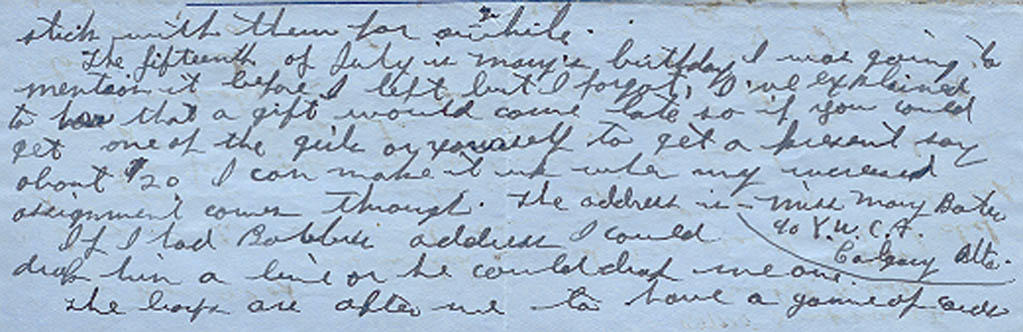 stick with them for awhile.
The fifteenth of July is Mary's birthday I was going to
mention it before I left but I forgot, I've explained
to her that a gift would come late so if you could
get one of the girls or yourself to get a present say
about $20 I can make it up when my increased
assignment comes through. The address is – Miss Mary
If I had address I could c/o Y.W.C.A.
drop him a line or he could drop me one. Calgary Alta.
The boys are after me to have a game of cards